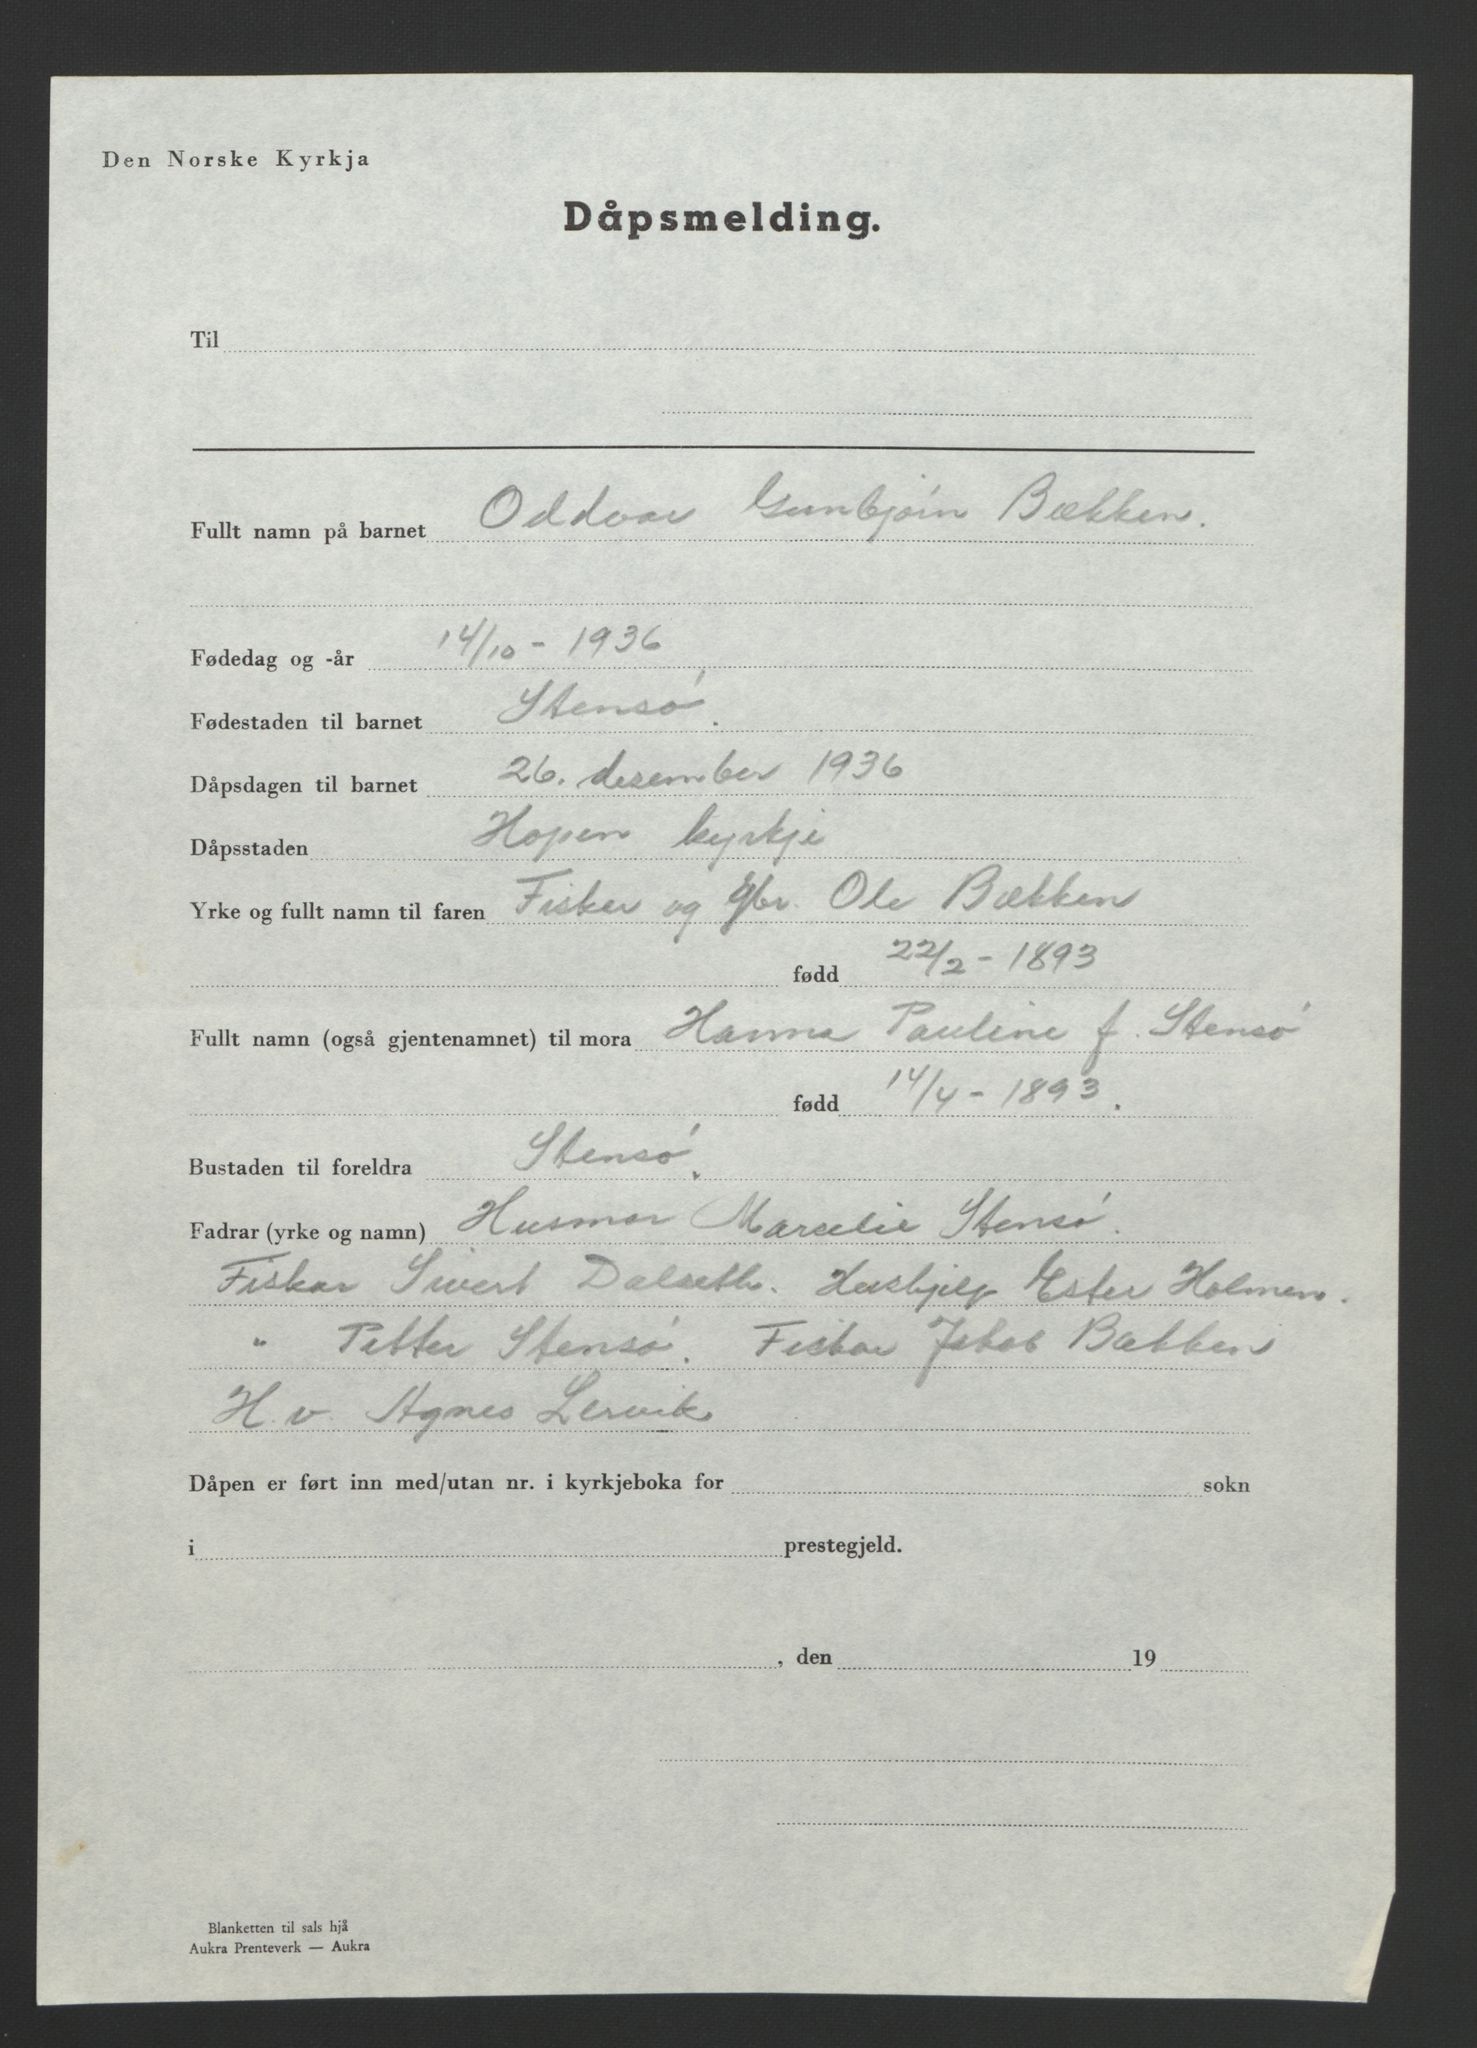 Den Norske Kyrkja
Dåpsmelding.
Til
Fullt namn på barnet Oddvar Gunbjørn Bækken.
Fødedag og -år 14/10 - 1936
Fødestaden til barnet Stensø.
Dåpsdagen til barnet 26. desember 1936
Dåpsstaden Hopen kyrkje
Yrke og fullt namn til faren Fisker og gbr. Ole Bækken
fødd 22/2 - 1893
Fullt namn (også gjentenamnet) til mora Hanna Pauline f. Stensø
fødd 14/4 - 1893.
Bustaden til foreldra Stensø.
Fadrar (yrke og namn) Husmor Marselie Stensø.
Fiskar Sivert Dalseth. Hushjelp Ester Holmen.
" Petter Stensø. Fiskar Jakob Bækken
H.v. Agnes Lervik
Dåpen er ført inn med/utan nr. i kyrkjeboka for sokn
i prestegjeld.
, den 19
Blanketten til sals hjå
Aukra Prenteverk — Aukra